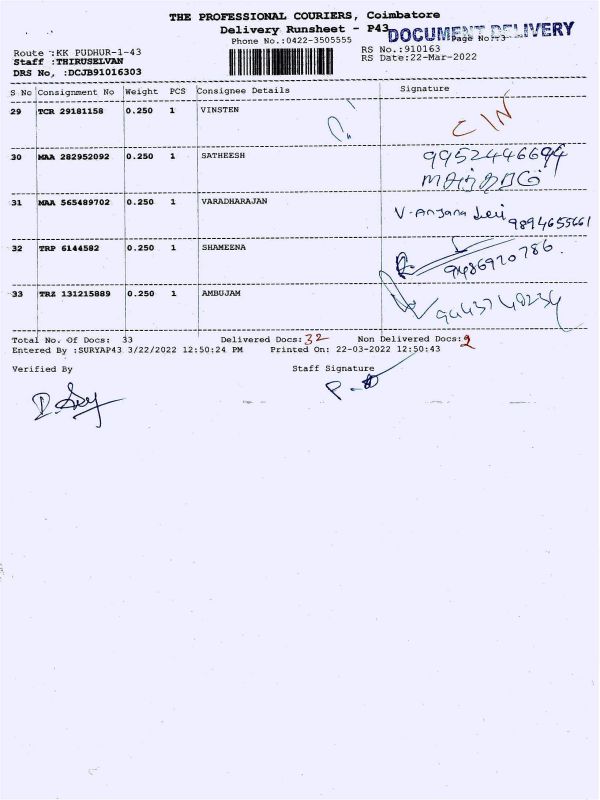 THE PROFESSIONAL COURIERS, Coimbatore
Delivery Runsheet - P43
DOCUMENT DELIVERY
Phone No.:0422-3505555
Route :KK PUDHUR-1-43
RS No.:910163
Staff :THIRUSELVAN
RS Date:22-Mar-2022
DRS No, :DCJB91016303
S No Consignment No Weight PCS Consignee Details Signature
29 TCR 29181158 0.250 1 VINSTEN CIN
30 MAA 282952092 0.250 1 SATHEESH 9952446694
31 MAA 565489702 0.250 1 VARADHARAJAN V-Anjana Devi 9894655661
32 TRP 6144582 0.250 1 SHAMEENA 9486920786.
33 TRZ 131215889 0.250 1 AMBUJAM
Total No. Of Docs: 33 Delivered Docs: 32 Non Delivered Docs:
Entered By :SURYAP43 3/22/2022 12:50:24 PM Printed On: 22-03-2022 12:50:43
Verified By Staff Signature